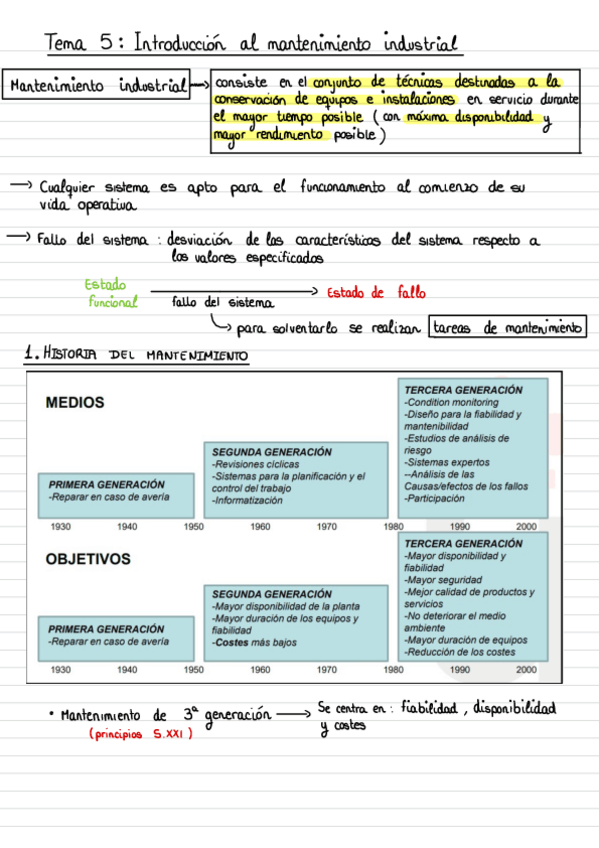 Tema 5: Introducción al mantenimiento industrial
Mantenimiento industrial
consiste en el conjunto de técnicas destinadas a la
conservación de equipos e instalaciones en servicio durante
el mayor tiempo posible (con máxima disponibilidad y
mayor rendimiento posible)
→ Cualquier sistema es apto para el funcionamiento al comienzo de su
vida operativa
→ Fallo del sistema: desviación de las características del sistema respecto a
los valores especificados
Estado
funcional
fallo del sistema
Estado de fallo
para solventarlo se realizan tareas de mantenimiento
1. HISTORIA DEL MANTENIMIENTO
MEDIOS
PRIMERA GENERACIÓN
-Reparar en caso de avería
SEGUNDA GENERACIÓN
-Revisiones cíclicas
-Sistemas para la planificación y el
control del trabajo
-Informatización
TERCERA GENERACIÓN
-Condition monitoring
-Diseño para la fiabilidad y
mantenibilidad
-Estudios de análisis de
riesgo
-Sistemas expertos
--Análisis de las
Causas/efectos de los fallos
-Participación
1930 1940 1950 1960 1970 1980 1990 2000
OBJETIVOS
PRIMERA GENERACIÓN
-Reparar en caso de avería
SEGUNDA GENERACIÓN
-Mayor disponibilidad de la planta
-Mayor duración de los equipos y
fiabilidad
-Costes más bajos
TERCERA GENERACIÓN
-Mayor disponibilidad y
fiabilidad
-Mayor seguridad
-Mejor calidad de productos y
servicios
-No deteriorar el medio
ambiente
-Mayor duración de equipos
-Reducción de los costes
1930 1940 1950 1960 1970 1980 1990 2000
• Mantenimiento de 3ª generación → Se centra en: fiabilidad, disponibilidad
y costes
(principios S.XXI)